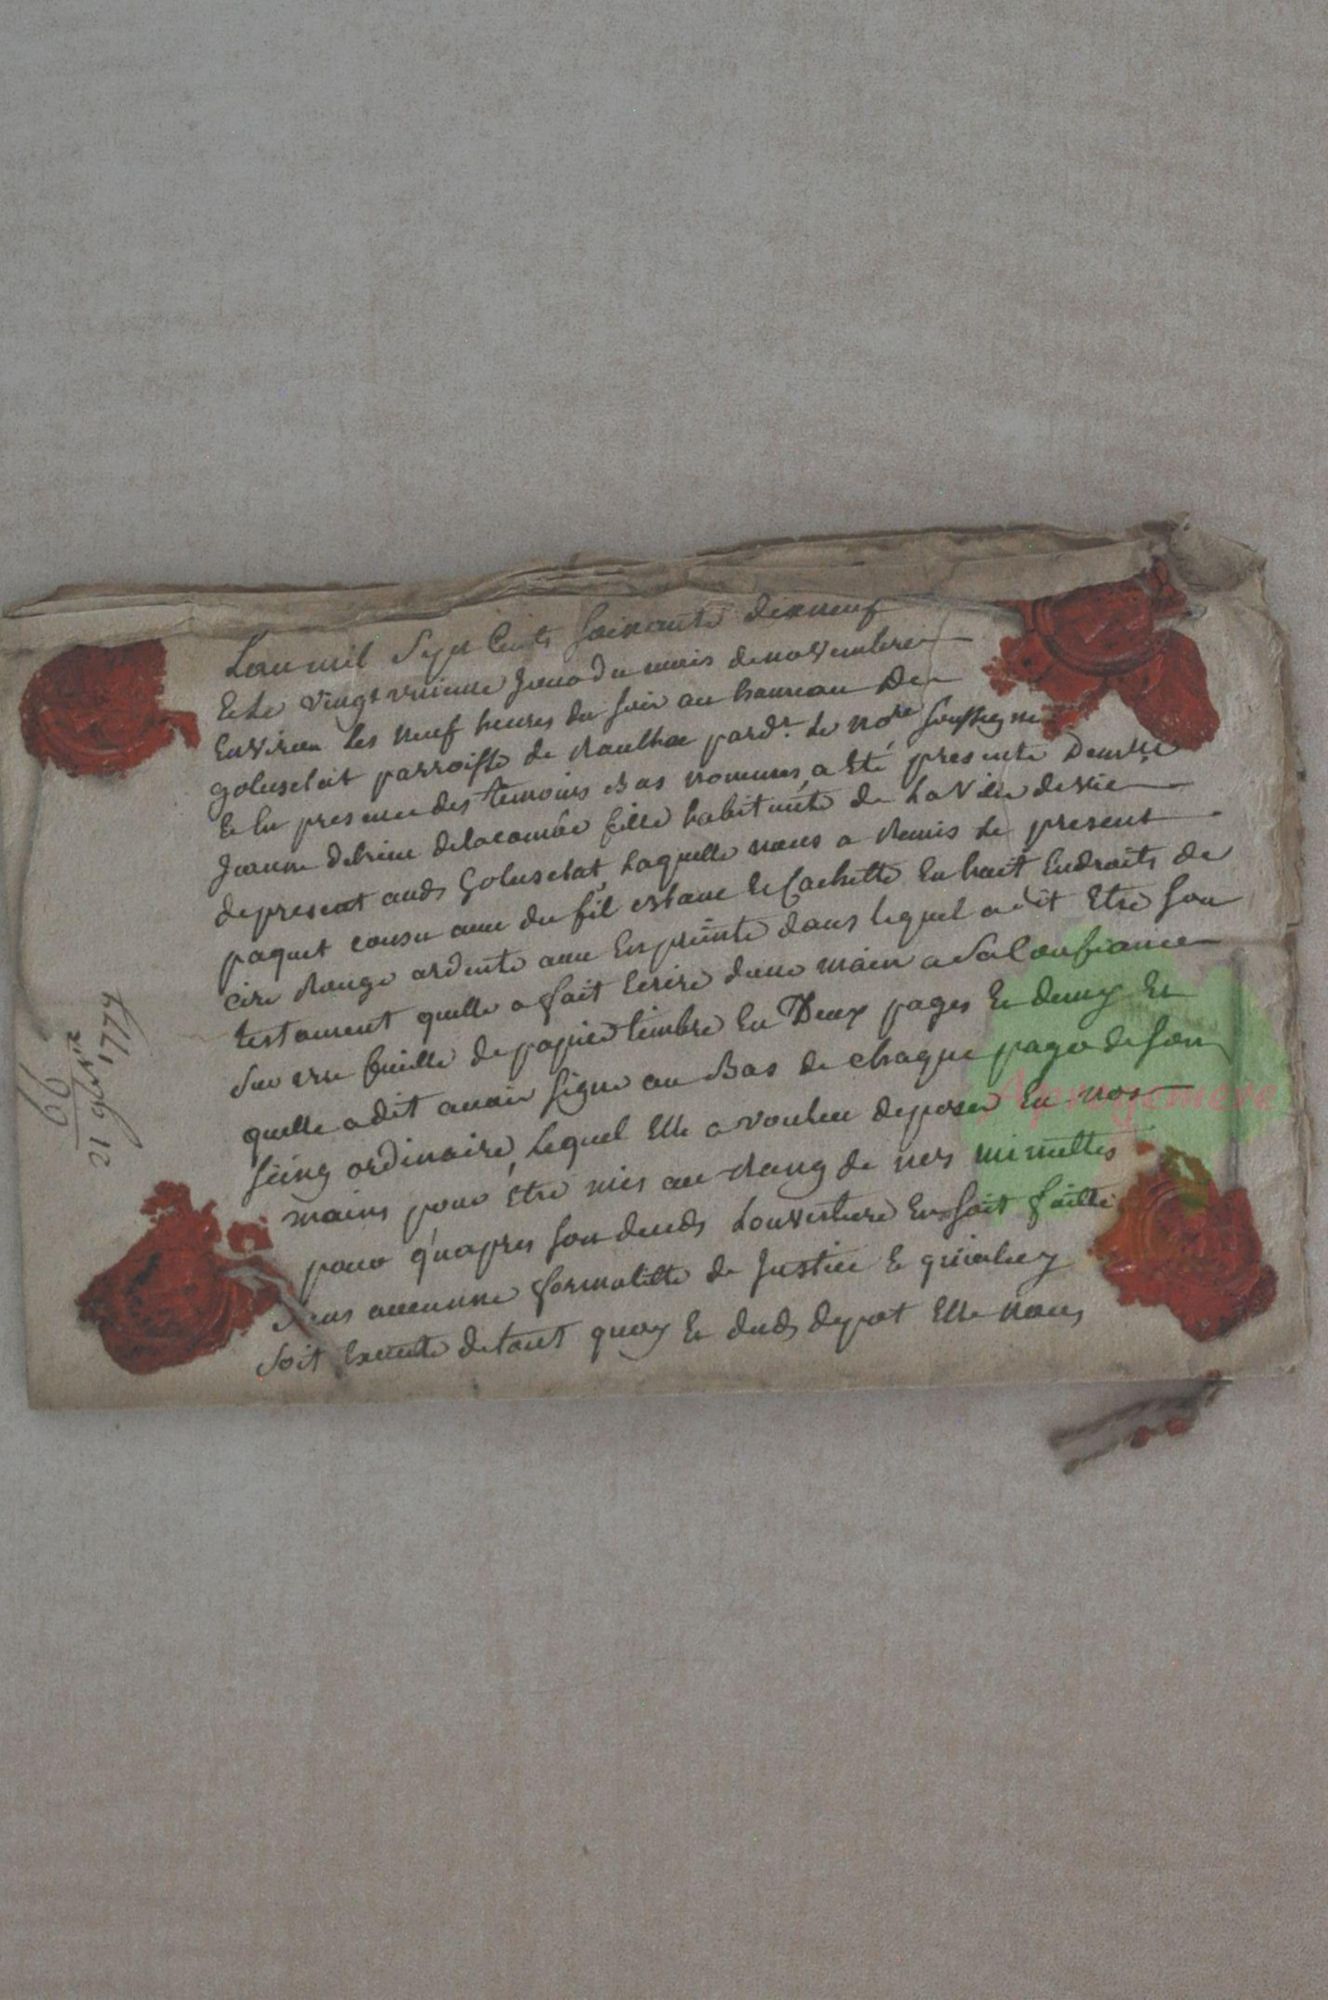 Lan mil Sept Cents Soixante dixneuf
Et le vingt unieme Jour du mois de novembre
Environ les neuf heures du soir au hameau De
goluselat parroisse de Raulhac pard.t le no.re soussigne
Et En presence des temoins Bas nommes, a Eté presente Dem.lle
Jeanne delacombe fille habitante de La Ville de vic
depresent aud. Goluselat, Laquelle nous a Remis Le present
paquet cousu avec du fil et Cachetté En huit Endroits de
cire Rouge ardente avec Enpreinte dans lequel a dit Etre son
testament quelle a fait Ecrire dune main a Sa Confiance
Sur une feuille de papier timbre En Deux pages Et demy Et
quelle a dit avoir signe au Bas de chaque page de son
seing ordinaire, Lequel Elle a voulu deposer En nos
mains pour être mis au Rang de nos minuttes
pour quapres son deceds Louverture En soit faitte
sans aucunne formalitté de Justice Et
Soit Executé de tout quoy Et dud. depot Elle nous
66
21 9bre
1779
Aprogemere